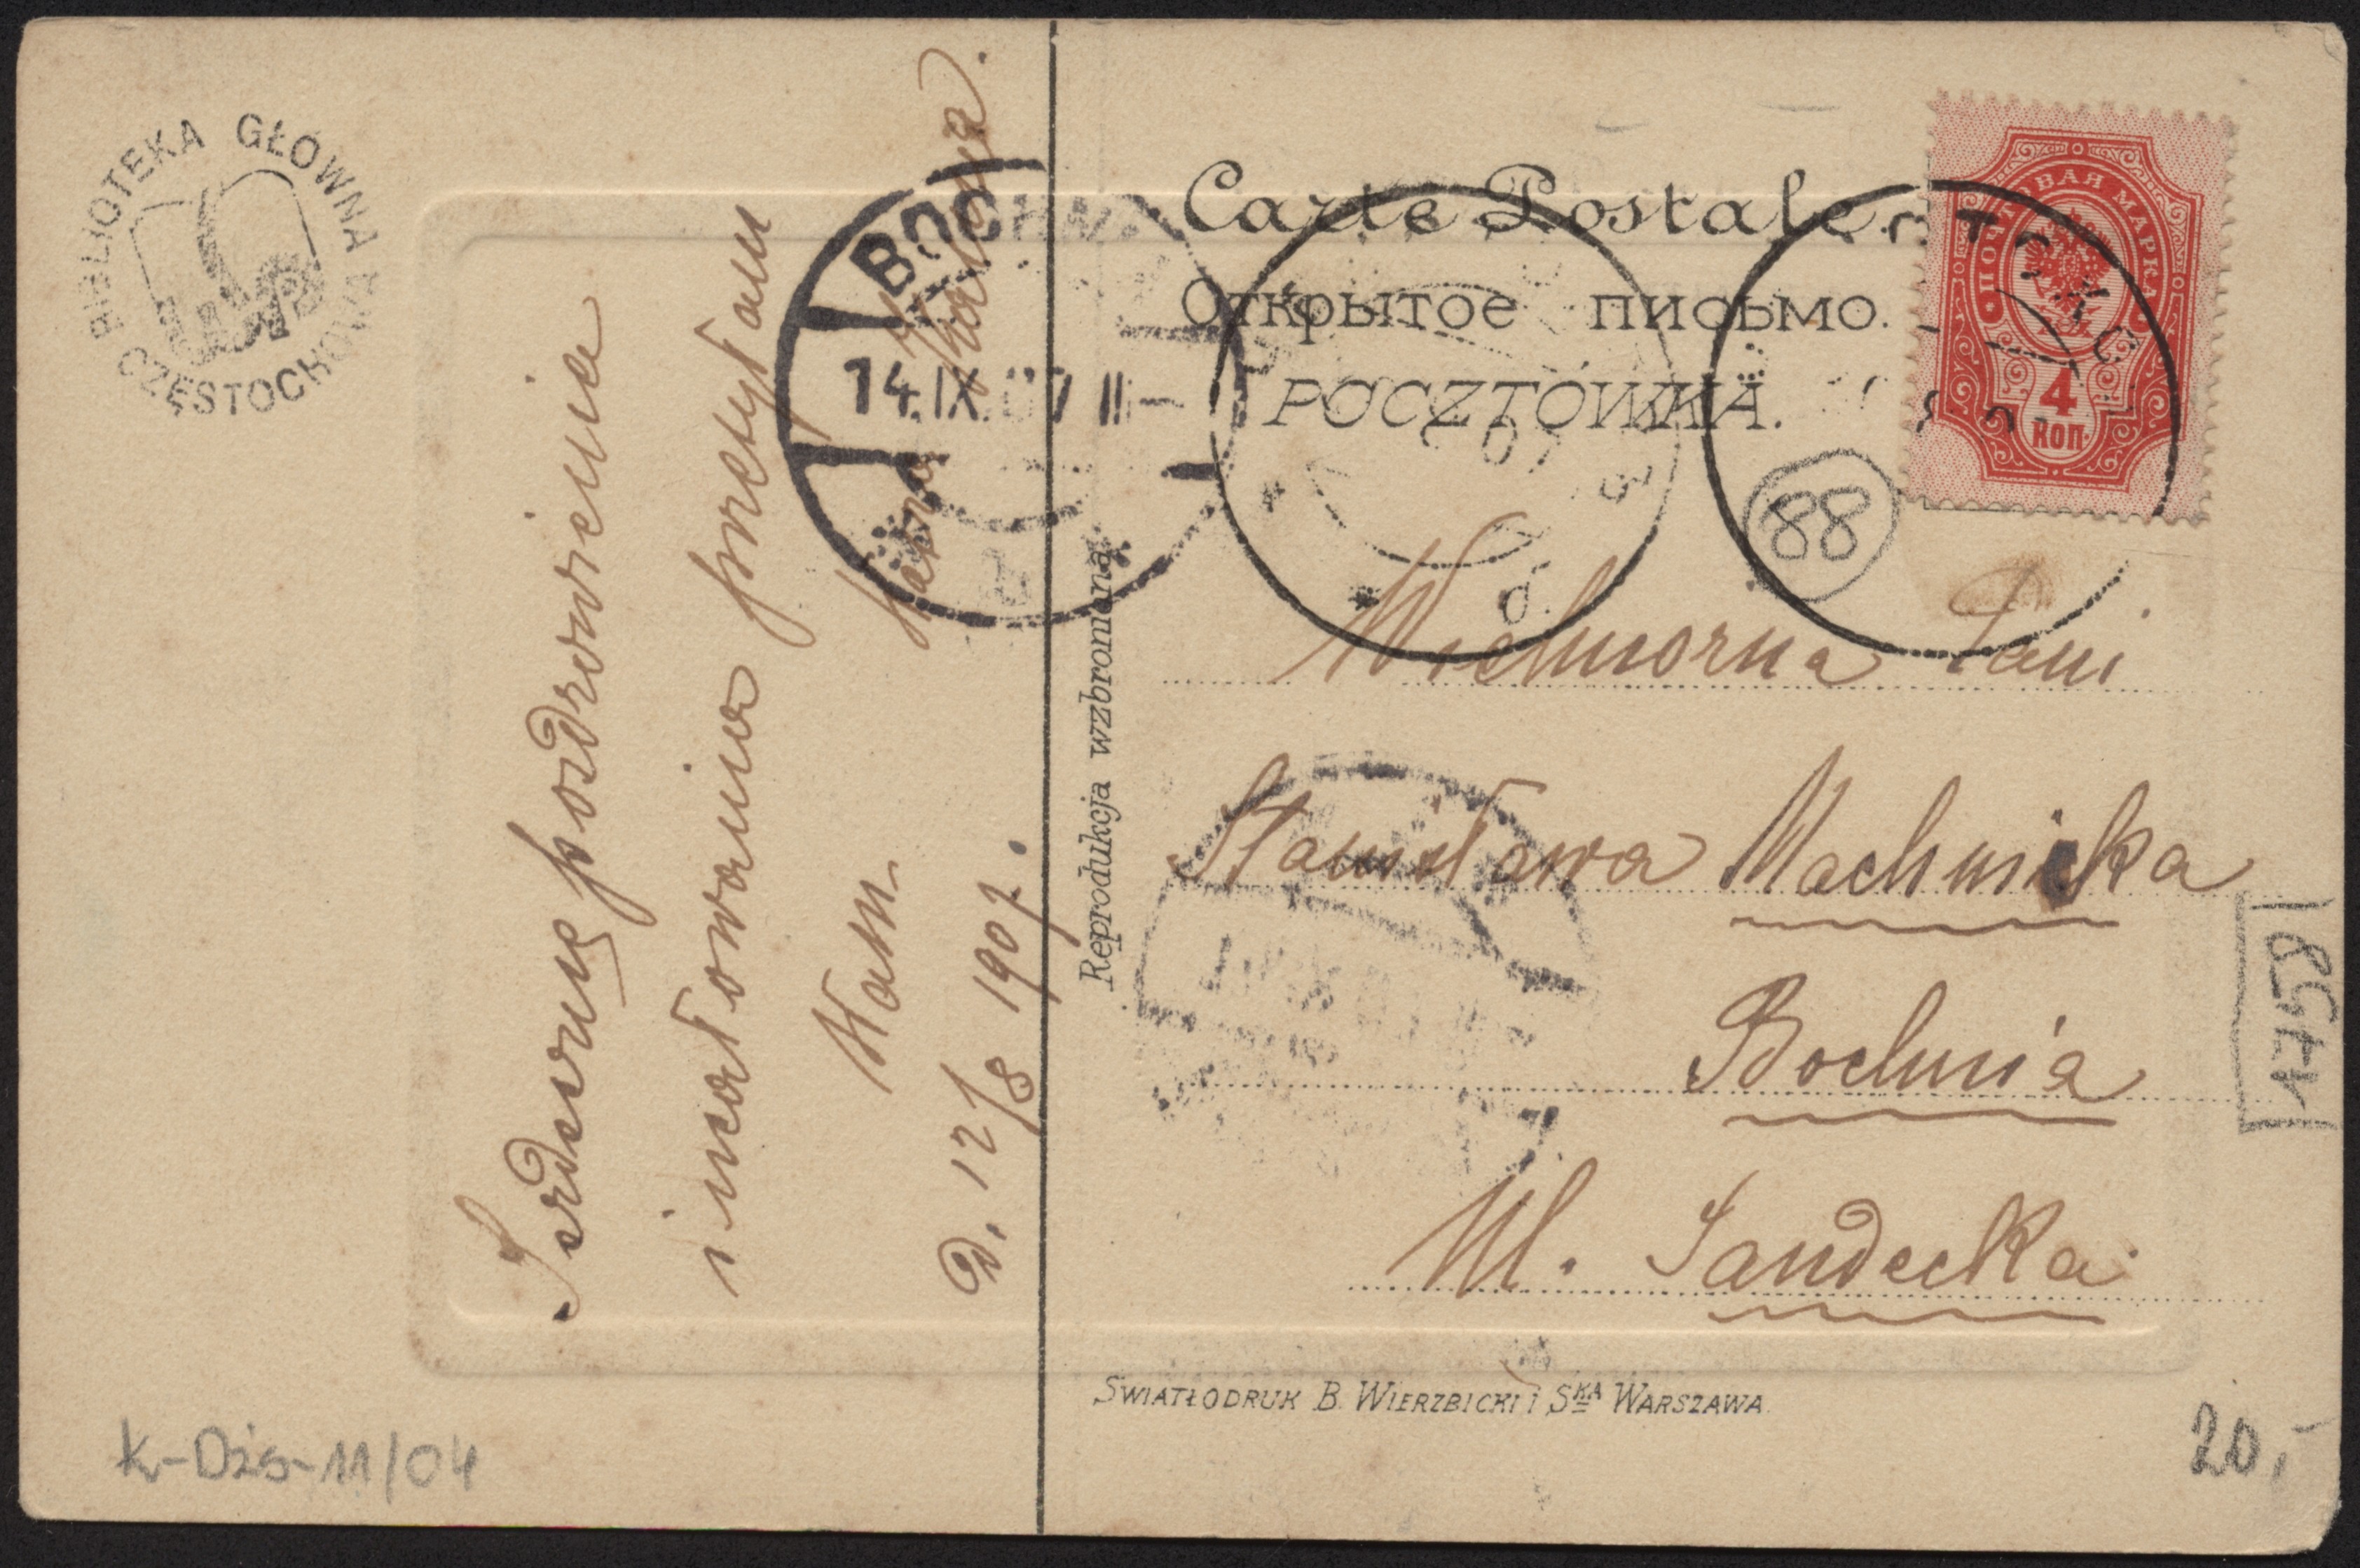 BIBLIOTEKA GŁÓWNA
CZĘSTOCHOWA
Serdeczne pozdrowienie
i ucałowania przesyłam
Wam
d. 12/8 1907.
BOCHN
14.IX.07 II
Carte Postale
Открытое письмо.
POCZTÓWKA.
ПОЧТОВАЯ МАРКА
4
КОП.
88
Reprodukcja wzbroniona
Wielmorzna Pani
Stanisława Machnicka
Bochnia
Ul. Sandecka
1758
ŚWIATŁODRUK B. WIERZBICKI i SKA WARSZAWA
K-Dżs-11/04
20,-